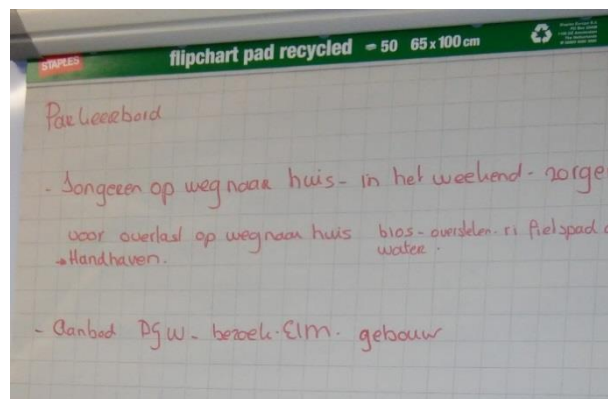 STAPLES flipchart pad recycled 50 65 x 100 cm
Parkeerbord
- Jongeren op weg naar huis - in het weekend - zorge
voor overlast op weg naar huis bios - oversteken - ri fietspad
water.
→ Handhaven.
- Aanbod PGW - bezoek. Elm. gebouw